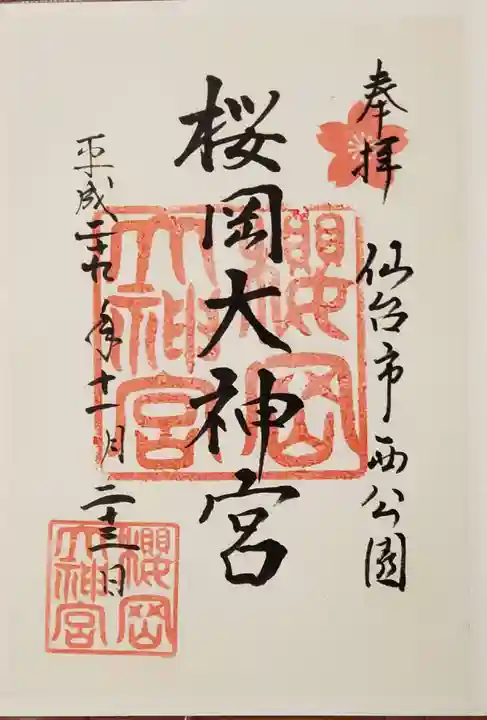 奉拝
仙台市西公園
桜岡大神宮
櫻岡
大神宮
平成二十九年十一月二十三日
櫻岡
大神宮